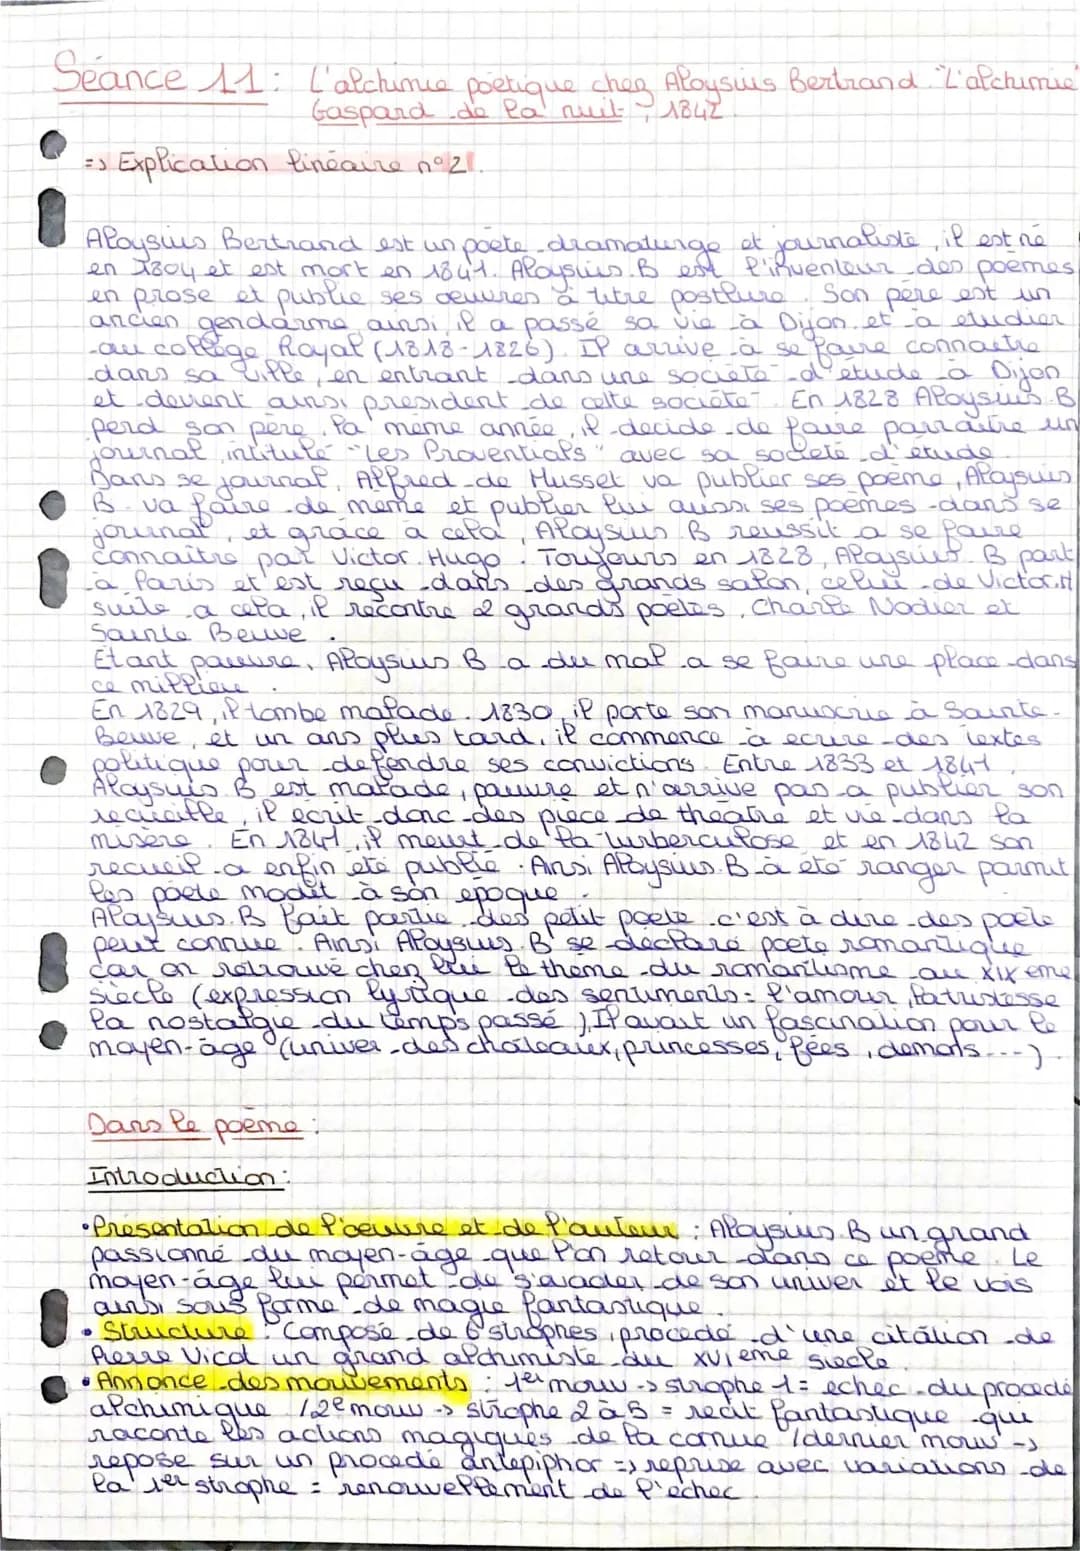 Séance 11 : L'alchimie poétique chez Aloysius Bertrand. "L'alchimie"
Gaspard de la nuit ; 1842.
=> Explication linéaire n°21.
Aloysius Bertrand est un poète dramaturge et journaliste, il est né
en 1804 et est mort en 1841. Aloysius.B est l'inventeur des poèmes
en prose et publie ses oeuvres à titre postlure. Son père est un
ancien gendarme ainsi, il a passé sa vie à Dijon et à etudier
au collège Royal (1818-1826). Il arrive à se faire connaitre
dans sa ville, en entrant dans une société d'étude à Dijon
et devient ainsi président de cette société. En 1828 Aloysius.B
perd son père, la même année, il decide de faire parraitre un
journal intitulé "Les Provential's" avec sa société d'étude.
Dans se journal, Alfred de Musset va publier ses poème, Aloysius
B. va faire de même et publier lui aussi ses poèmes dans se
journal, et grâce à cela, Aloysius.B reussit a se faire
connaitre par Victor.Hugo. Toujours en 1828, Aloysius.B part
à Paris et est reçu dans des grands salon, celui de Victor.H
suite a cela, il recontre 2 grands poètes, Charle Nodier et
Sainte Beuve.
Etant pauvre, Aloysius B a du mal a se faire une place dans
ce millieu.
En 1829, il tombe malade. 1830, il porte son manuscrie à Sainte-
Beuve, et un ans plus tard, il commence à ecrire des textes
politique pour defendre ses convictions. Entre 1833 et 1841,
Aloysius.B est malade, pauvre et n'arrive pas a publier son
recueille, il écrit donc des pièce de théâtre et vie dans la
misère. En 1841, il meurt de la turberculose et en 1842 son
recueil a enfin été publié. Ansi Aloysius.B à été ranger parmit
les poète modit à son epoque.
Aloysius.B fait partie des petit poete c'est à dire des poète
peut connue. Ainsi Aloysius.B se déclare poete romantique
car on retrouve chez lui le thème du romantisme au XIX eme
siecle (expression lyrique des sentiments = l'amour, la tristesse
la nostalgie du temps passé), Il avait un fascination pour le
moyen-âge (univer des chateaux, princesses, fées, demons...).
Dans le poème :
Introduction :
• Présentation de l'oeuvre et de l'auteur : Aloysius.B un grand
passionné du moyen-âge que l'on retour dans ce poème. Le
moyen-âge lui permet de s'evader de son univer et le vois
ainsi sous forme de magie fantastique.
• Structure : Composé de 6 strophes, procedé d'une citation de
Pierre Vicot un grand alchimiste du XVIeme siecle.
• Annonce des mouvements : 1er mouv -> strophe 1 = echec du procedé
alchimique / 2e mouv -> strophe 2 à 5 = recit fantastique qui
raconte les actions magiques de la cornue / dernier mouv ->
repose sur un procedé antepiphor => reprise avec variations de
la 1er strophe = renouvellement de l'échec.